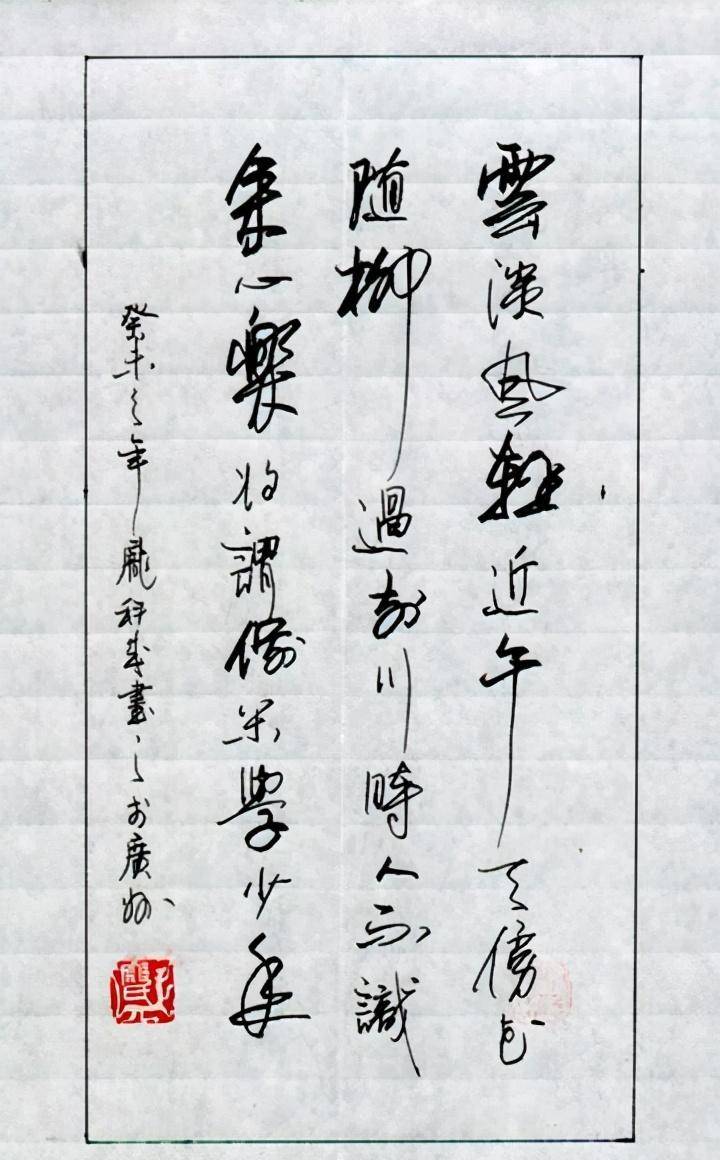 雲淡風輕近午天傍花
随柳過前川時人不識
余心樂将謂偷閑學少年
癸未之年龐書之於廣州